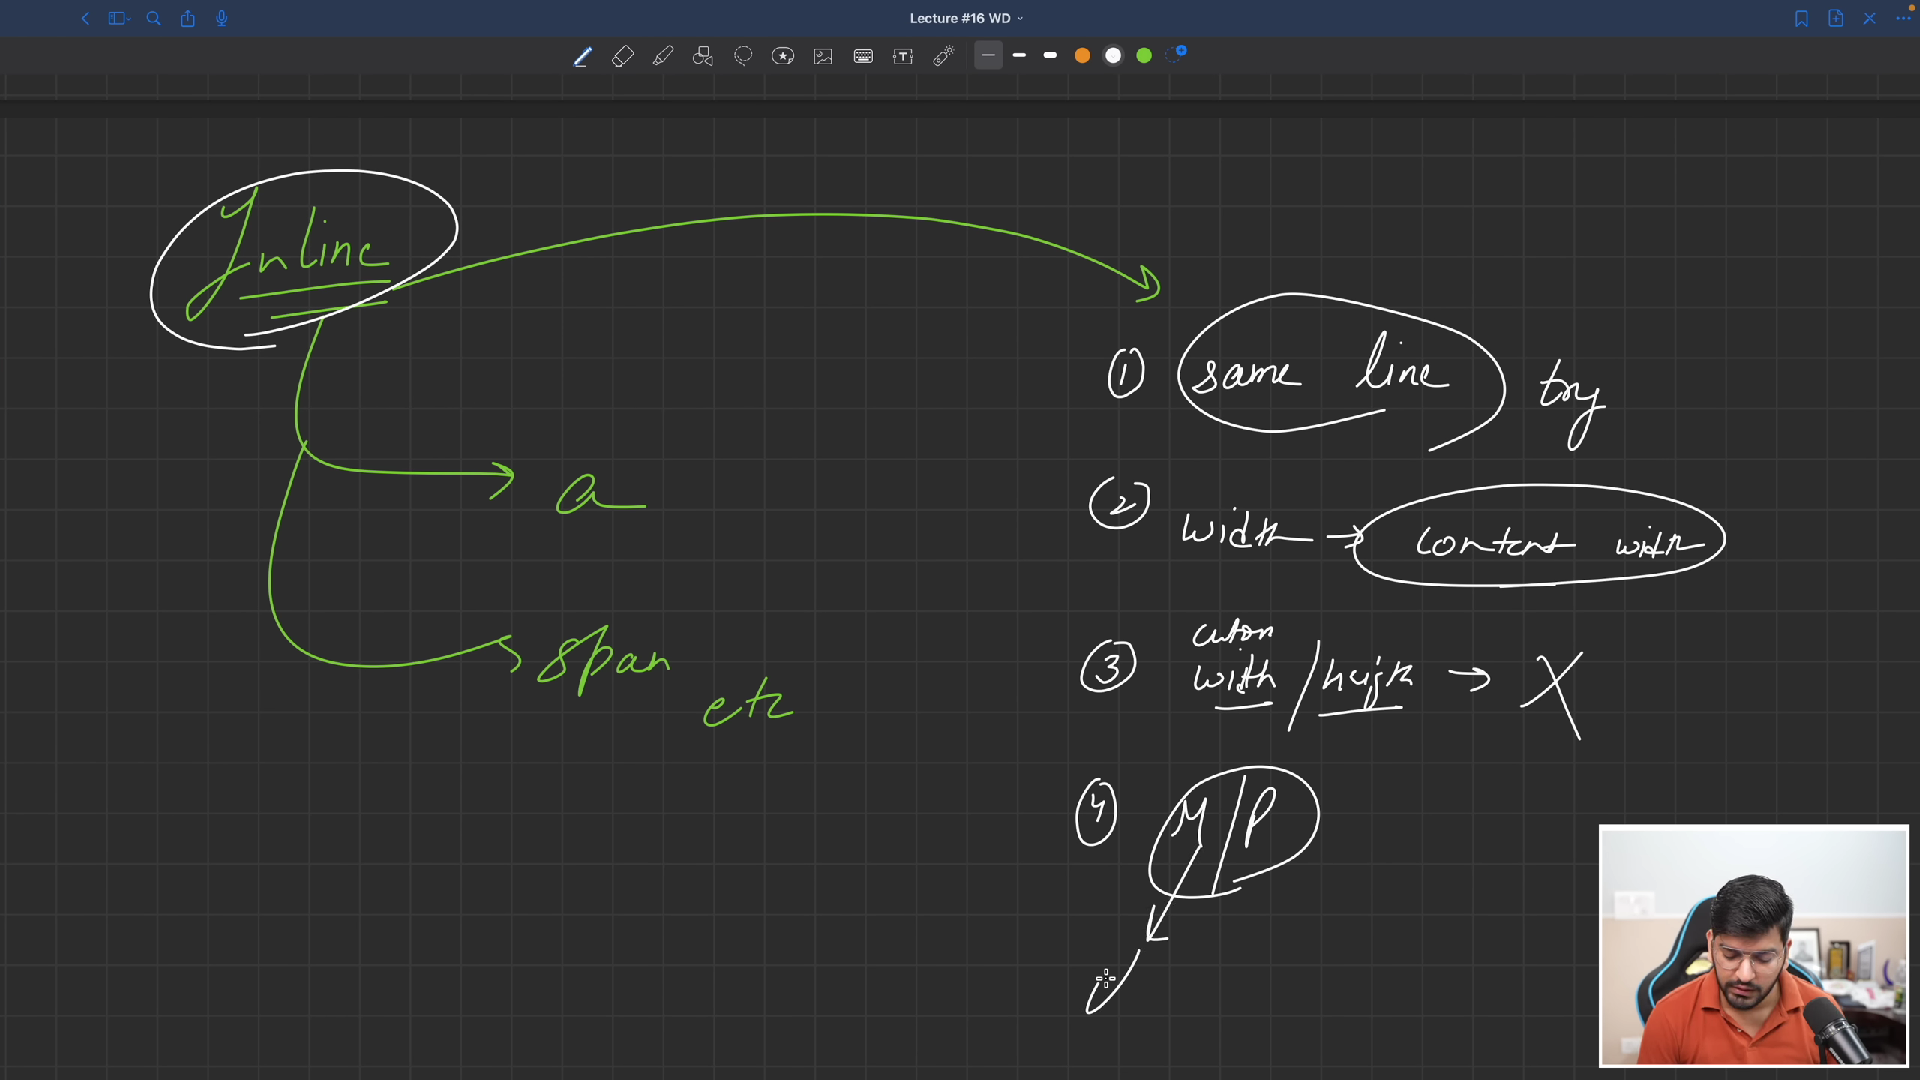 Lecture #16 WD
Inline
a
span
etc
① same line try
② width → content width
③ cutom
with / heigh → X
④ M/P